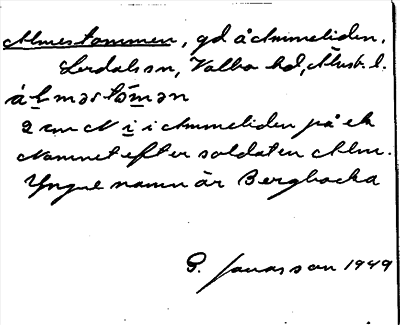 Almestommen, gd å Ammeliden,
Lerdals sn, Valbo hd, Älvsb. l.
á l̠məstòm̠ən
2 cm N i i Ammeliden på ek
Namnet efter soldaten Alm.
Yngre namn är Bergbacka
G. Jonasson 1949